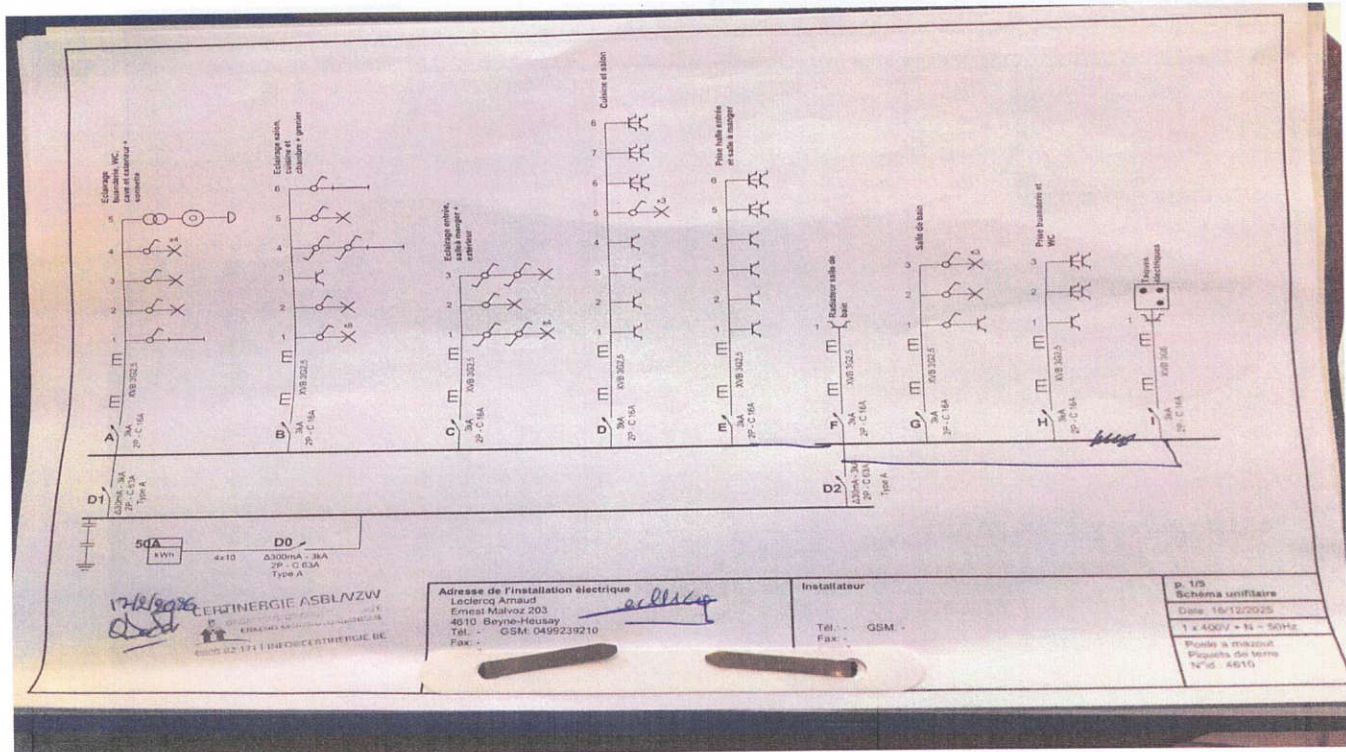 Eclairage
buanderie, WC,
cave et exterieur +
sonnette
5
4
3
2
1
XVB 3G2,5
A
3kA
2P - C 16A
Eclairage salon,
cuisine et
chambre + grenier
6
5
4
3
2
1
XVB 3G2,5
B
3kA
2P - C 16A
Eclairage entrée,
salle à manger +
extérieur
3
2
1
XVB 3G2,5
C
3kA
2P - C 16A
Cuisine et salon
8
7
6
5
4
3
2
1
XVB 3G2,5
D
3kA
2P - C 16A
Prise halle entrée
et salle à manger
6
5
4
3
2
1
XVB 3G2,5
E
3kA
2P - C 16A
Radiateur salle de
bain
1
XVB 3G2,5
F
3kA
2P - C 16A
Salle de bain
3
2
1
XVB 3G2,5
G
3kA
2P - C 16A
Prise buanderie et
WC
3
2
1
XVB 3G2,5
H
3kA
2P - C 16A
Taques
électriques
1
XVB 3G6
I
3kA
2P - C 16A
D1
Δ30mA - 3kA
2P - C 63A
Type A
D2
Δ30mA - 3kA
2P - C 63A
Type A
50A
kWh
4x10
D0
Δ300mA - 3kA
2P - C 63A
Type A
CERTINERGIE ASBL/VZW
Adresse de l'installation électrique
Leclercq Arnaud
Ernest Malvoz 203
4610 Beyne-Heusay
Tél. - GSM: 0499239210
Fax: -
Installateur
Tél. - GSM: -
Fax: -
p. 1/5
Schéma unifilaire
Date: 16/12/2025
1 x 400V + N ~ 50Hz
Poele a mazout
Piquets de terre
N°id.: 4610